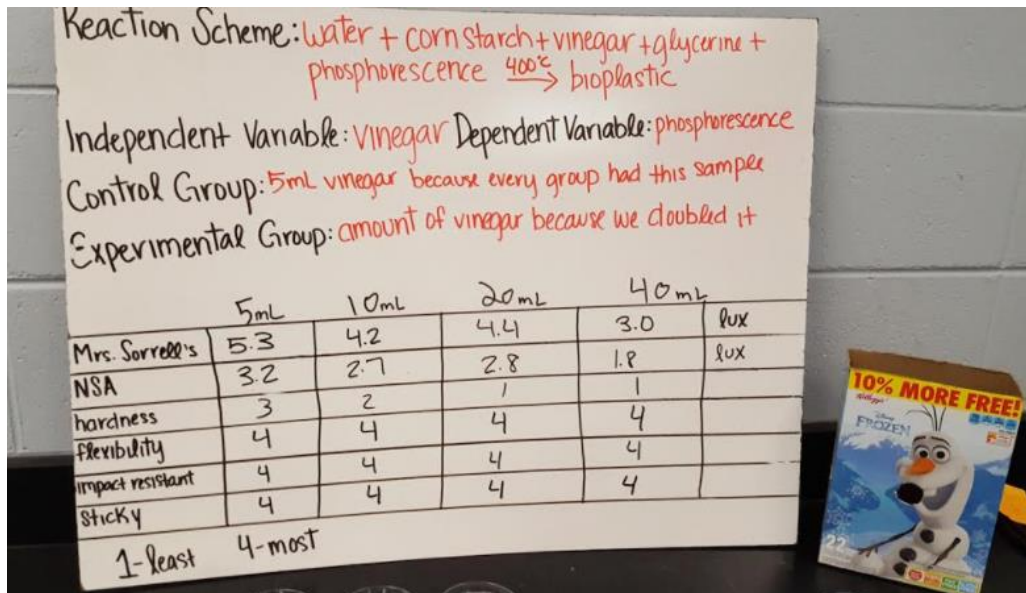 Reaction Scheme: water + cornstarch + vinegar + glycerine +
phosphorescence 400°C bioplastic
Independent Variable: vinegar Dependent Variable: phosphorescence
Control Group: 5mL vinegar because every group had this sample
Experimental Group: amount of vinegar because we doubled it
5mL 10mL 20mL 40mL
Mrs. Sorrell's 5.3 4.2 4.4 3.0 lux
NSA 3.2 2.7 2.8 1.8 lux
hardness 3 2 1 1
flexibility 4 4 4 4
impact resistant 4 4 4 4
sticky 4 4 4 4
1-least 4-most
10% MORE FREE!
Kellogg's
Disney
FROZEN
22